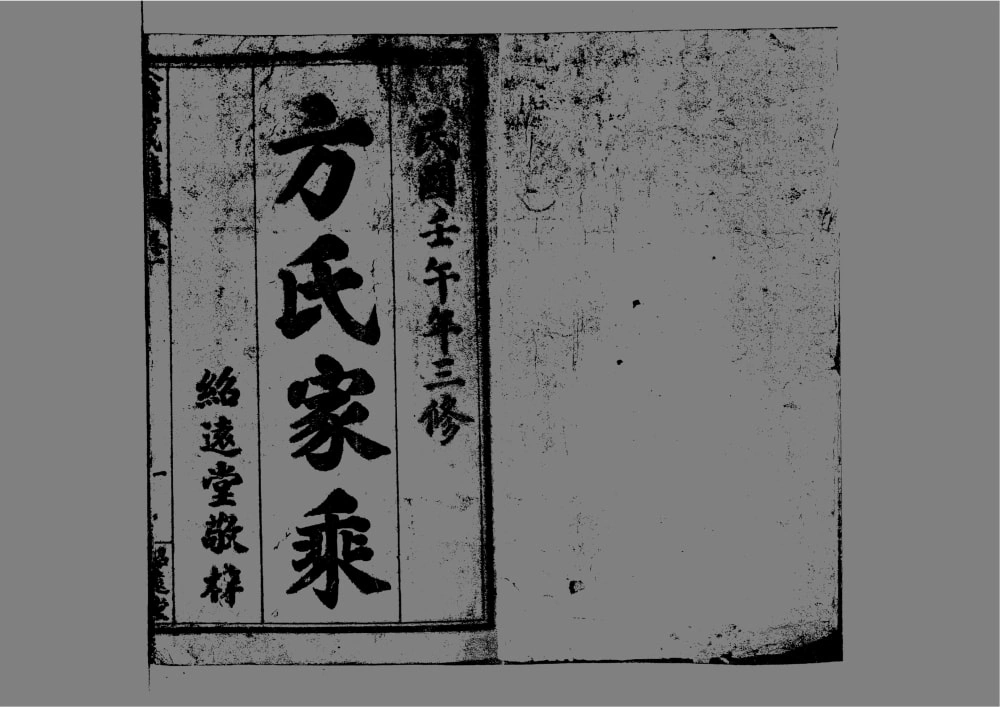 民國壬午年三修
方氏家乘
紹遠堂敬梓
一
紹遠堂